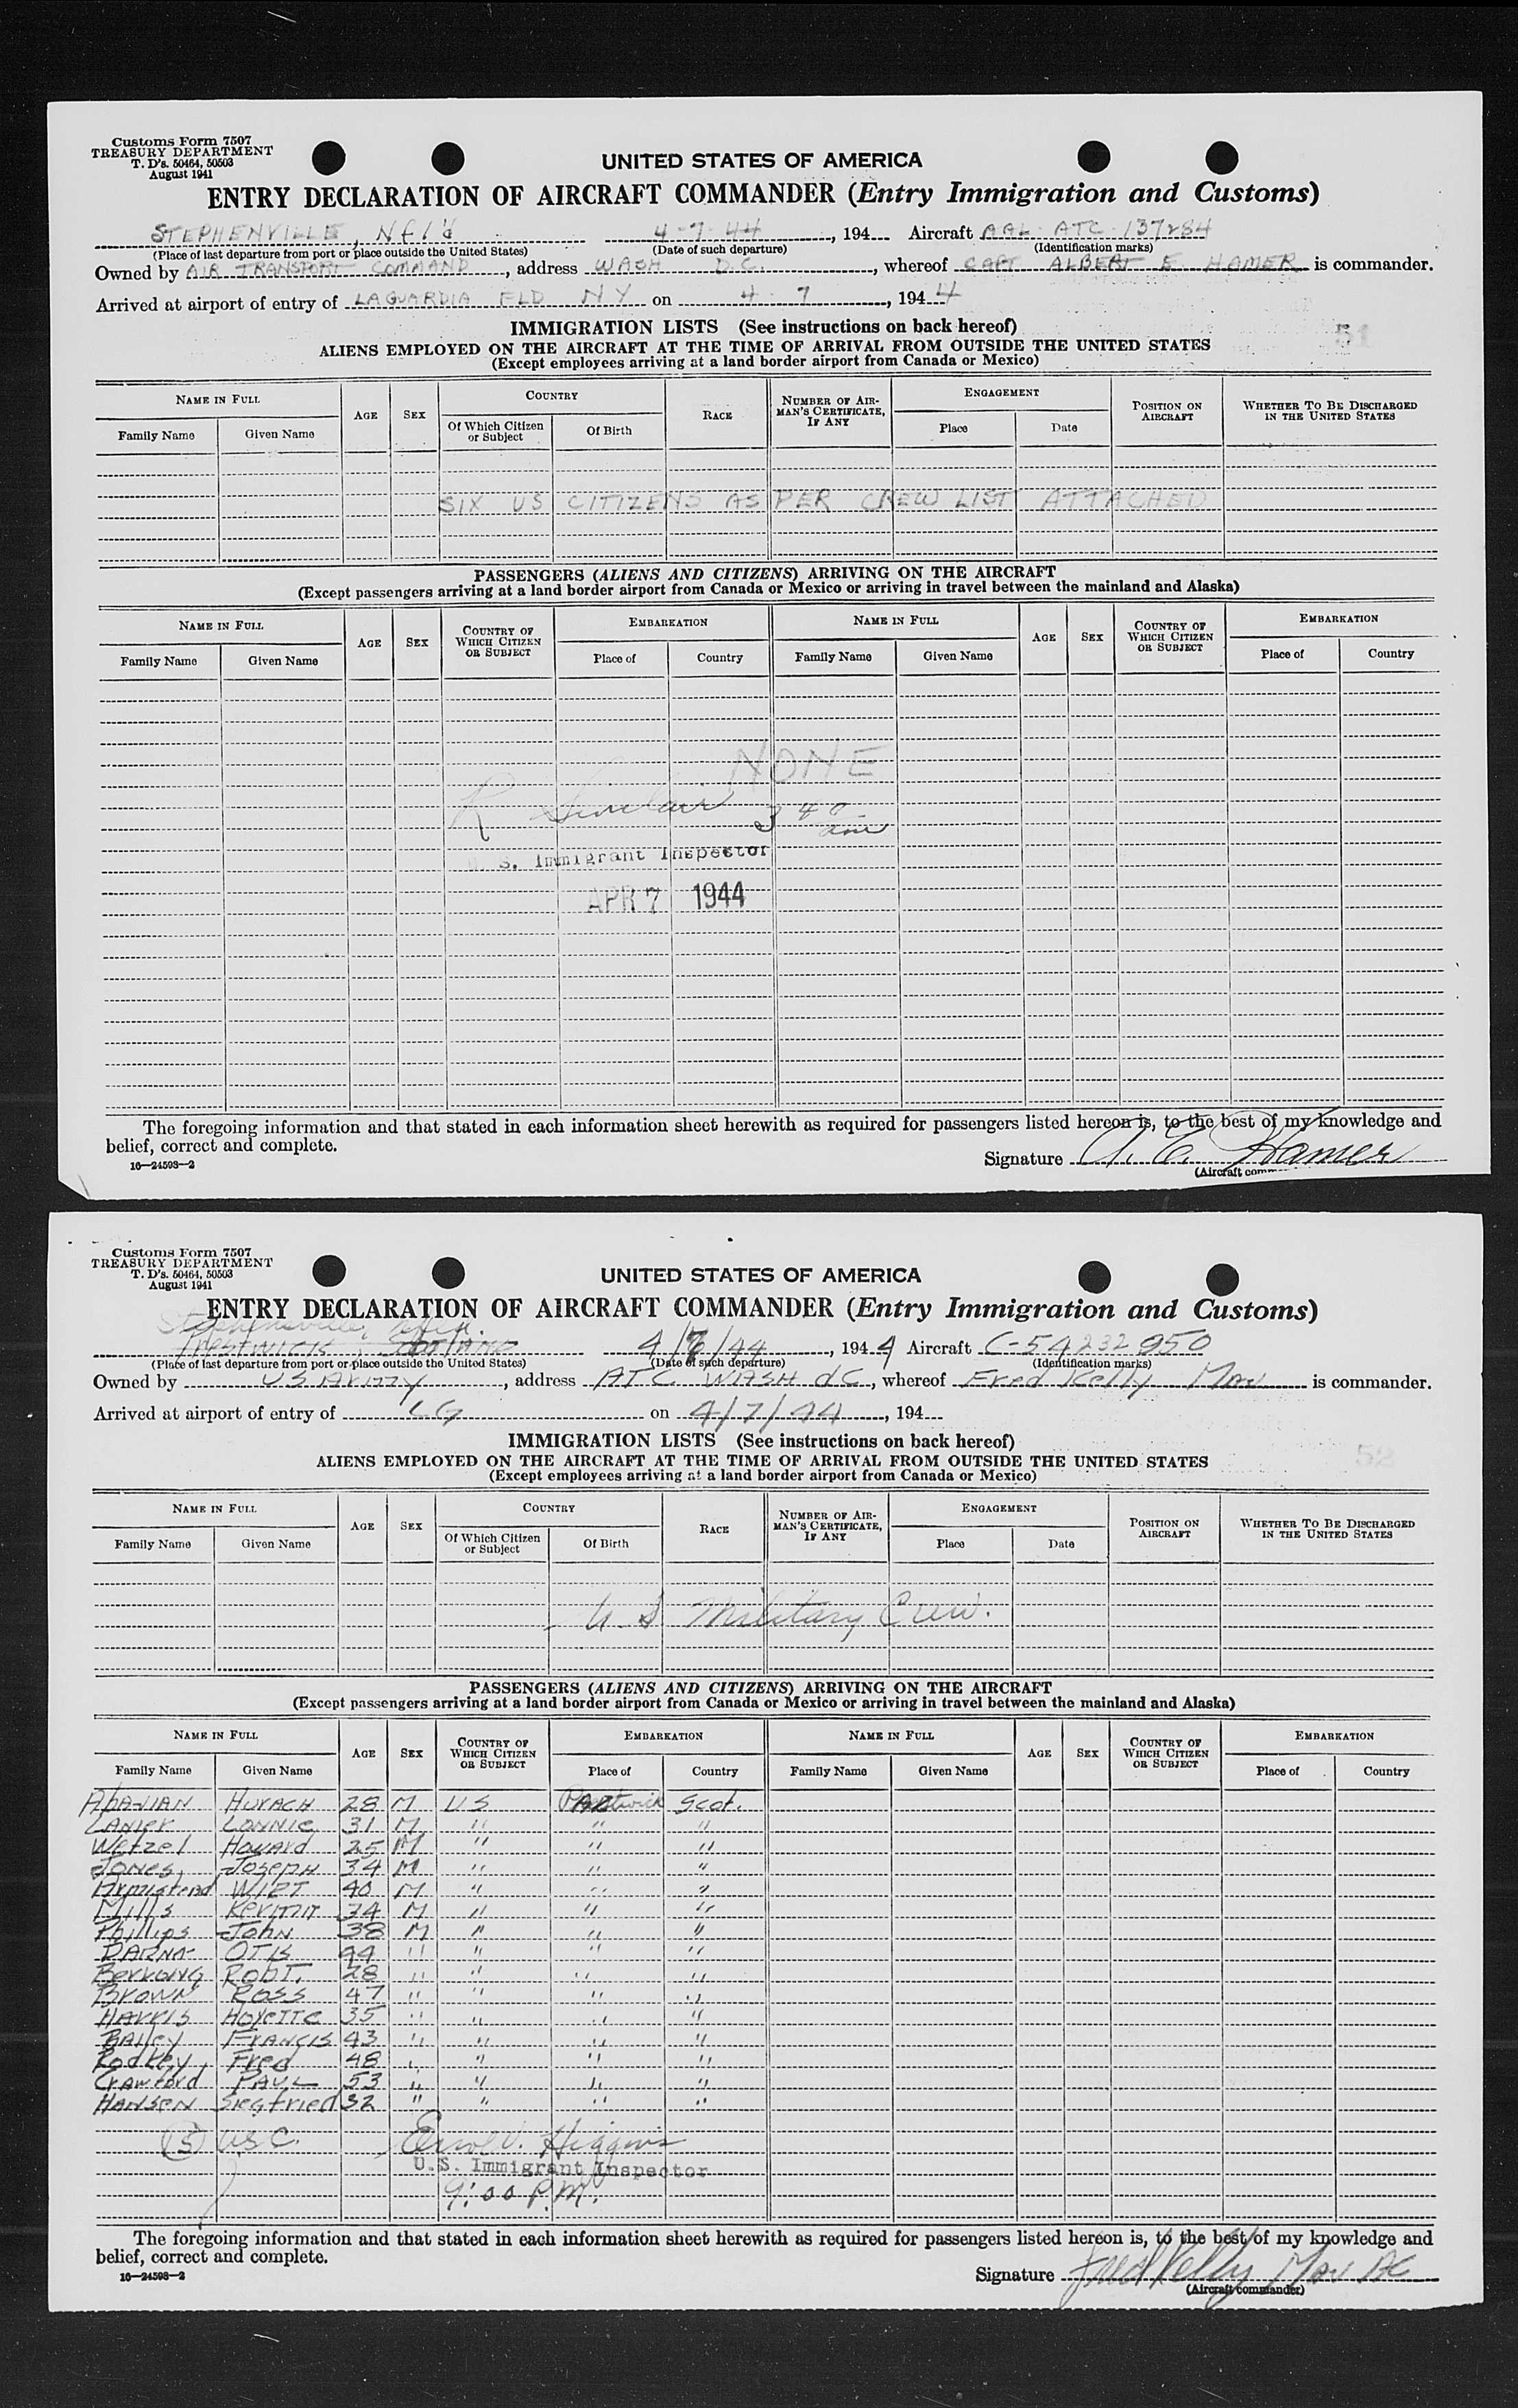 Customs Form 7507
TREASURY DEPARTMENT
T. D's. 50464, 50503
August 1941
UNITED STATES OF AMERICA
ENTRY DECLARATION OF AIRCRAFT COMMANDER (Entry Immigration and Customs)
STEPHENVILLE, Nfld 4-7-44, 194 Aircraft AAL ATC 137284
(Place of last departure from port or place outside the United States) (Date of such departure) (Identification marks)
Owned by AIR TRANSPORT COMMAND, address WASH D.C., whereof CAPT ALBERT E HAMER is commander.
Arrived at airport of entry of LAGUARDIA FLD NY on 4 7, 1944
IMMIGRATION LISTS (See instructions on back hereof)
51
ALIENS EMPLOYED ON THE AIRCRAFT AT THE TIME OF ARRIVAL FROM OUTSIDE THE UNITED STATES
(Except employees arriving at a land border airport from Canada or Mexico)
NAME IN FULL AGE SEX COUNTRY RACE NUMBER OF AIRMAN'S CERTIFICATE, IF ANY ENGAGEMENT POSITION ON AIRCRAFT WHETHER TO BE DISCHARGED IN THE UNITED STATES
Family Name Given Name Of Which Citizen or Subject Of Birth Place Date
SIX US CITIZENS AS PER CREW LIST ATTACHED
PASSENGERS (ALIENS AND CITIZENS) ARRIVING ON THE AIRCRAFT
(Except passengers arriving at a land border airport from Canada or Mexico or arriving in travel between the mainland and Alaska)
NAME IN FULL AGE SEX COUNTRY OF WHICH CITIZEN OR SUBJECT EMBARKATION NAME IN FULL AGE SEX COUNTRY OF WHICH CITIZEN OR SUBJECT EMBARKATION
Family Name Given Name Place of Country Family Name Given Name Place of Country
NONE
R Sinclair 3 40 am
U. S. Immigrant Inspector
APR 7 1944
The foregoing information and that stated in each information sheet herewith as required for passengers listed hereon is, to the best of my knowledge and
belief, correct and complete.
16—24593-2
Signature A. E. Hamer
(Aircraft comm
Customs Form 7507
TREASURY DEPARTMENT
T. D's. 50464, 50503
August 1941
UNITED STATES OF AMERICA
ENTRY DECLARATION OF AIRCRAFT COMMANDER (Entry Immigration and Customs)
Stephenville, Nfld.
Prestwick, Scotland 4/7/44, 1944 Aircraft C-54 232950
(Place of last departure from port or place outside the United States) (Date of such departure) (Identification marks)
Owned by US Army, address ATC WASH DC, whereof Fred Kelly Maj is commander.
Arrived at airport of entry of LG on 4/7/44, 194
IMMIGRATION LISTS (See instructions on back hereof)
52
ALIENS EMPLOYED ON THE AIRCRAFT AT THE TIME OF ARRIVAL FROM OUTSIDE THE UNITED STATES
(Except employees arriving at a land border airport from Canada or Mexico)
NAME IN FULL AGE SEX COUNTRY RACE NUMBER OF AIRMAN'S CERTIFICATE, IF ANY ENGAGEMENT POSITION ON AIRCRAFT WHETHER TO BE DISCHARGED IN THE UNITED STATES
Family Name Given Name Of Which Citizen or Subject Of Birth Place Date
U S Military Crew.
PASSENGERS (ALIENS AND CITIZENS) ARRIVING ON THE AIRCRAFT
(Except passengers arriving at a land border airport from Canada or Mexico or arriving in travel between the mainland and Alaska)
NAME IN FULL AGE SEX COUNTRY OF WHICH CITIZEN OR SUBJECT EMBARKATION NAME IN FULL AGE SEX COUNTRY OF WHICH CITIZEN OR SUBJECT EMBARKATION
Family Name Given Name Place of Country Family Name Given Name Place of Country
HURACH 28 M US Prestwick Scot.
LANIER LONNIE 31 M " " "
Wetzel Howard 25 M " " "
Jones, Joseph 34 M " " "
Armistead WIRT 40 M " " "
Mills Kermit 34 M " " "
Phillips John 38 M " " "
OTIS 44 " " " "
ROBT. 28 " " " "
Brown ROSS 47 " " " "
HARRIS HOYETTE 35 " " " "
BAILEY FRANCIS 43 " " " "
Rodkey, Fred 48 " " " "
Crawford PAUL 53 " " " "
HANSEN Siegfried 32 " " " "
15 USC. Errol V. Higgins
U.S. Immigrant Inspector
9:00 P.M.
The foregoing information and that stated in each information sheet herewith as required for passengers listed hereon is, to the best of my knowledge and
belief, correct and complete.
16—24593-2
Signature Fred Kelly Maj AC
(Aircraft commander)